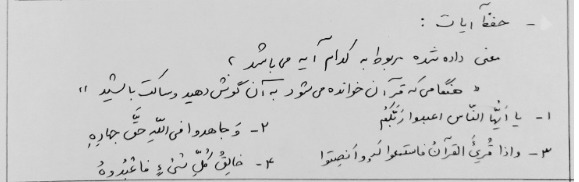 - حفظ آیات :
معنی داده شده مربوط به کدام آیه می باشد ؟
« هنگامی که قرآن خوانده می شود به آن گوش دهید و ساکت باشید »
۱- یا اَیُّها النّاس اعبدوا رَبَّکُم ۲- وَ جاهدوا فی اللّهِ حَقَّ جهادِهِ
۳- و اذا قُرِئَ القرآنُ فاستمعوا لَهُ و اَنصِتوا ۴- خالِقُ کُلِّ شَیْءٍ فاعْبُدوهُ